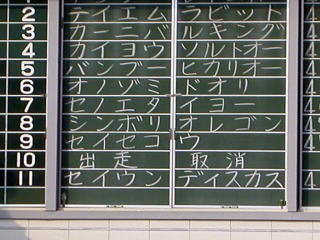 2 テイエム ラビット
3 カーニバ ルキング
4 カイヨウ ソルトオー
5 バンブー ヒカリオー
6 オノゾミ ドオリ
7 セノエタ イヨー
8 シンボリ オレゴン
9 セイセコ ウ
10 出走 取消
11 セイウン ディスカス